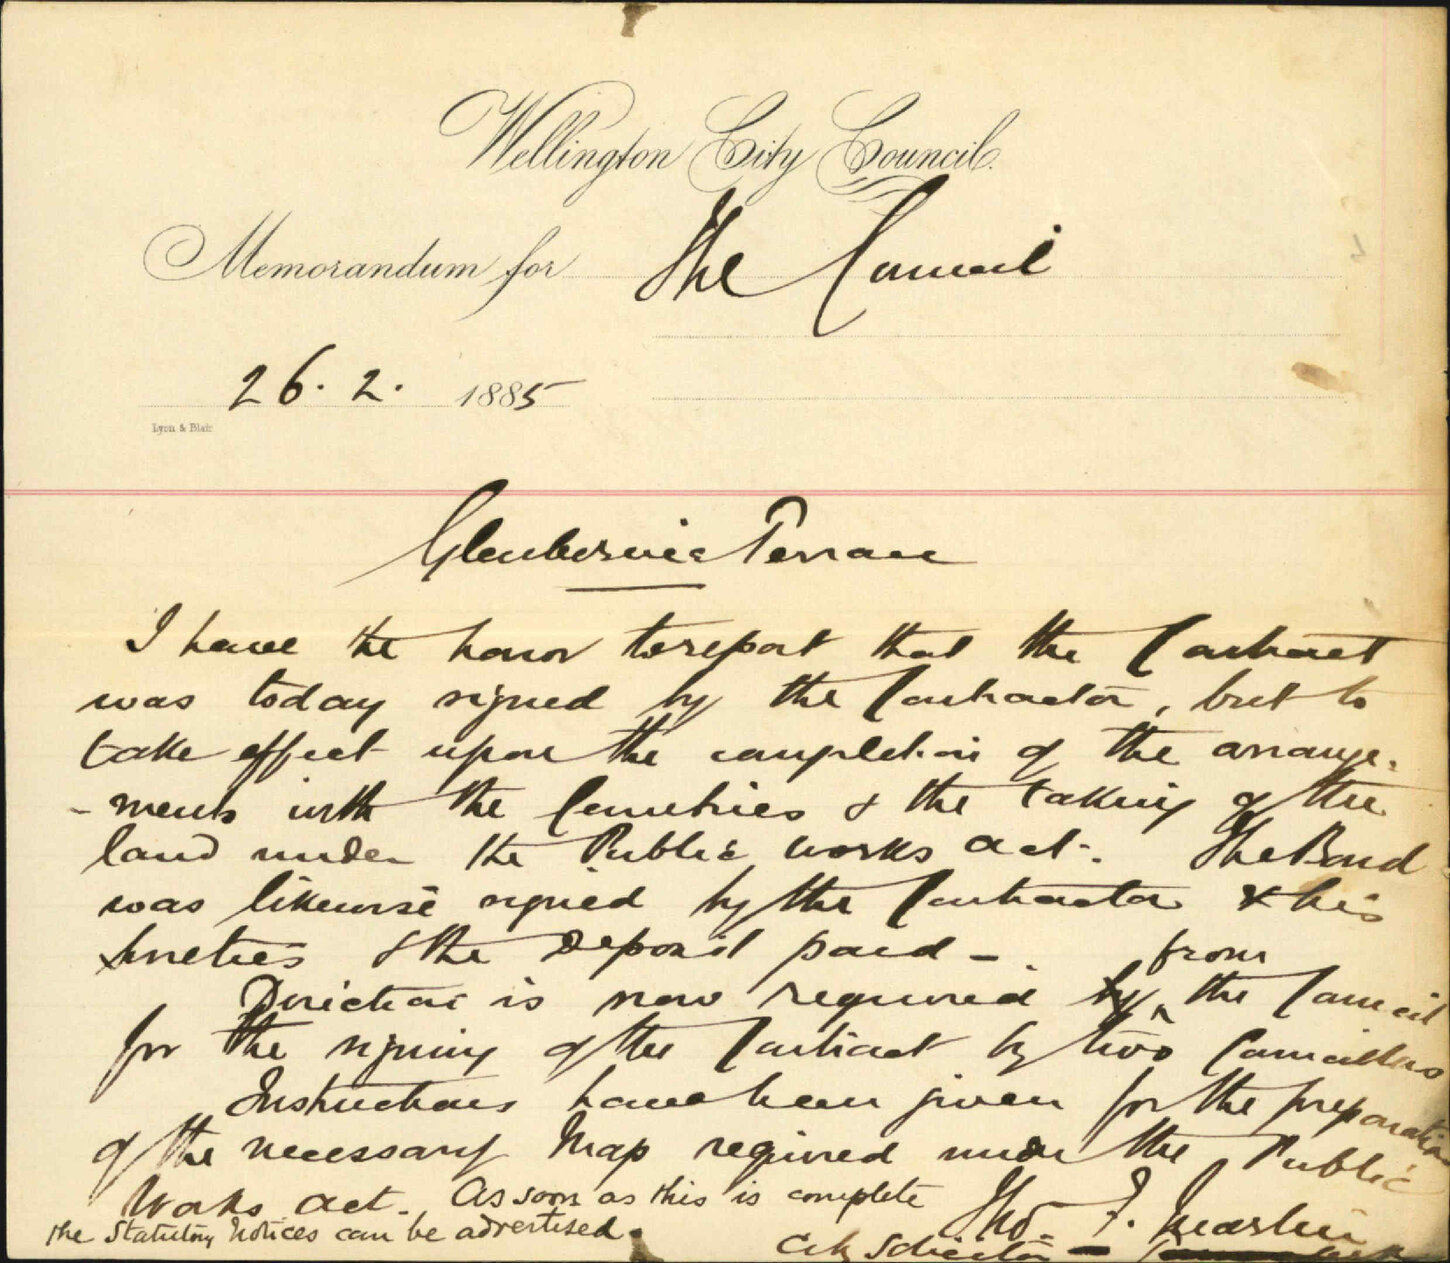 Wellington City Council.
Memorandum for The Council
26. 2. 1885
Lyon & Blair
Glenbervie Terrace
I have the honor to report that the Contract
was today signed by the Contractor, but to
take effect upon the completion of the arrange-
-ments with the Cemetries & the taking of the
land under the Public Works Act. The Bond
was likewise signed by the Contractor & his
sureties & the Deposit paid -
from
Direction is now required by the Council
for the signing of the Contract by two Councillors
Instructions have been given for the preparation
of the necessary Map required under the Public
Works Act. As soon as this is complete
the Statutory Notices can be advertised.
Tho. F. Martin
City Solicitor